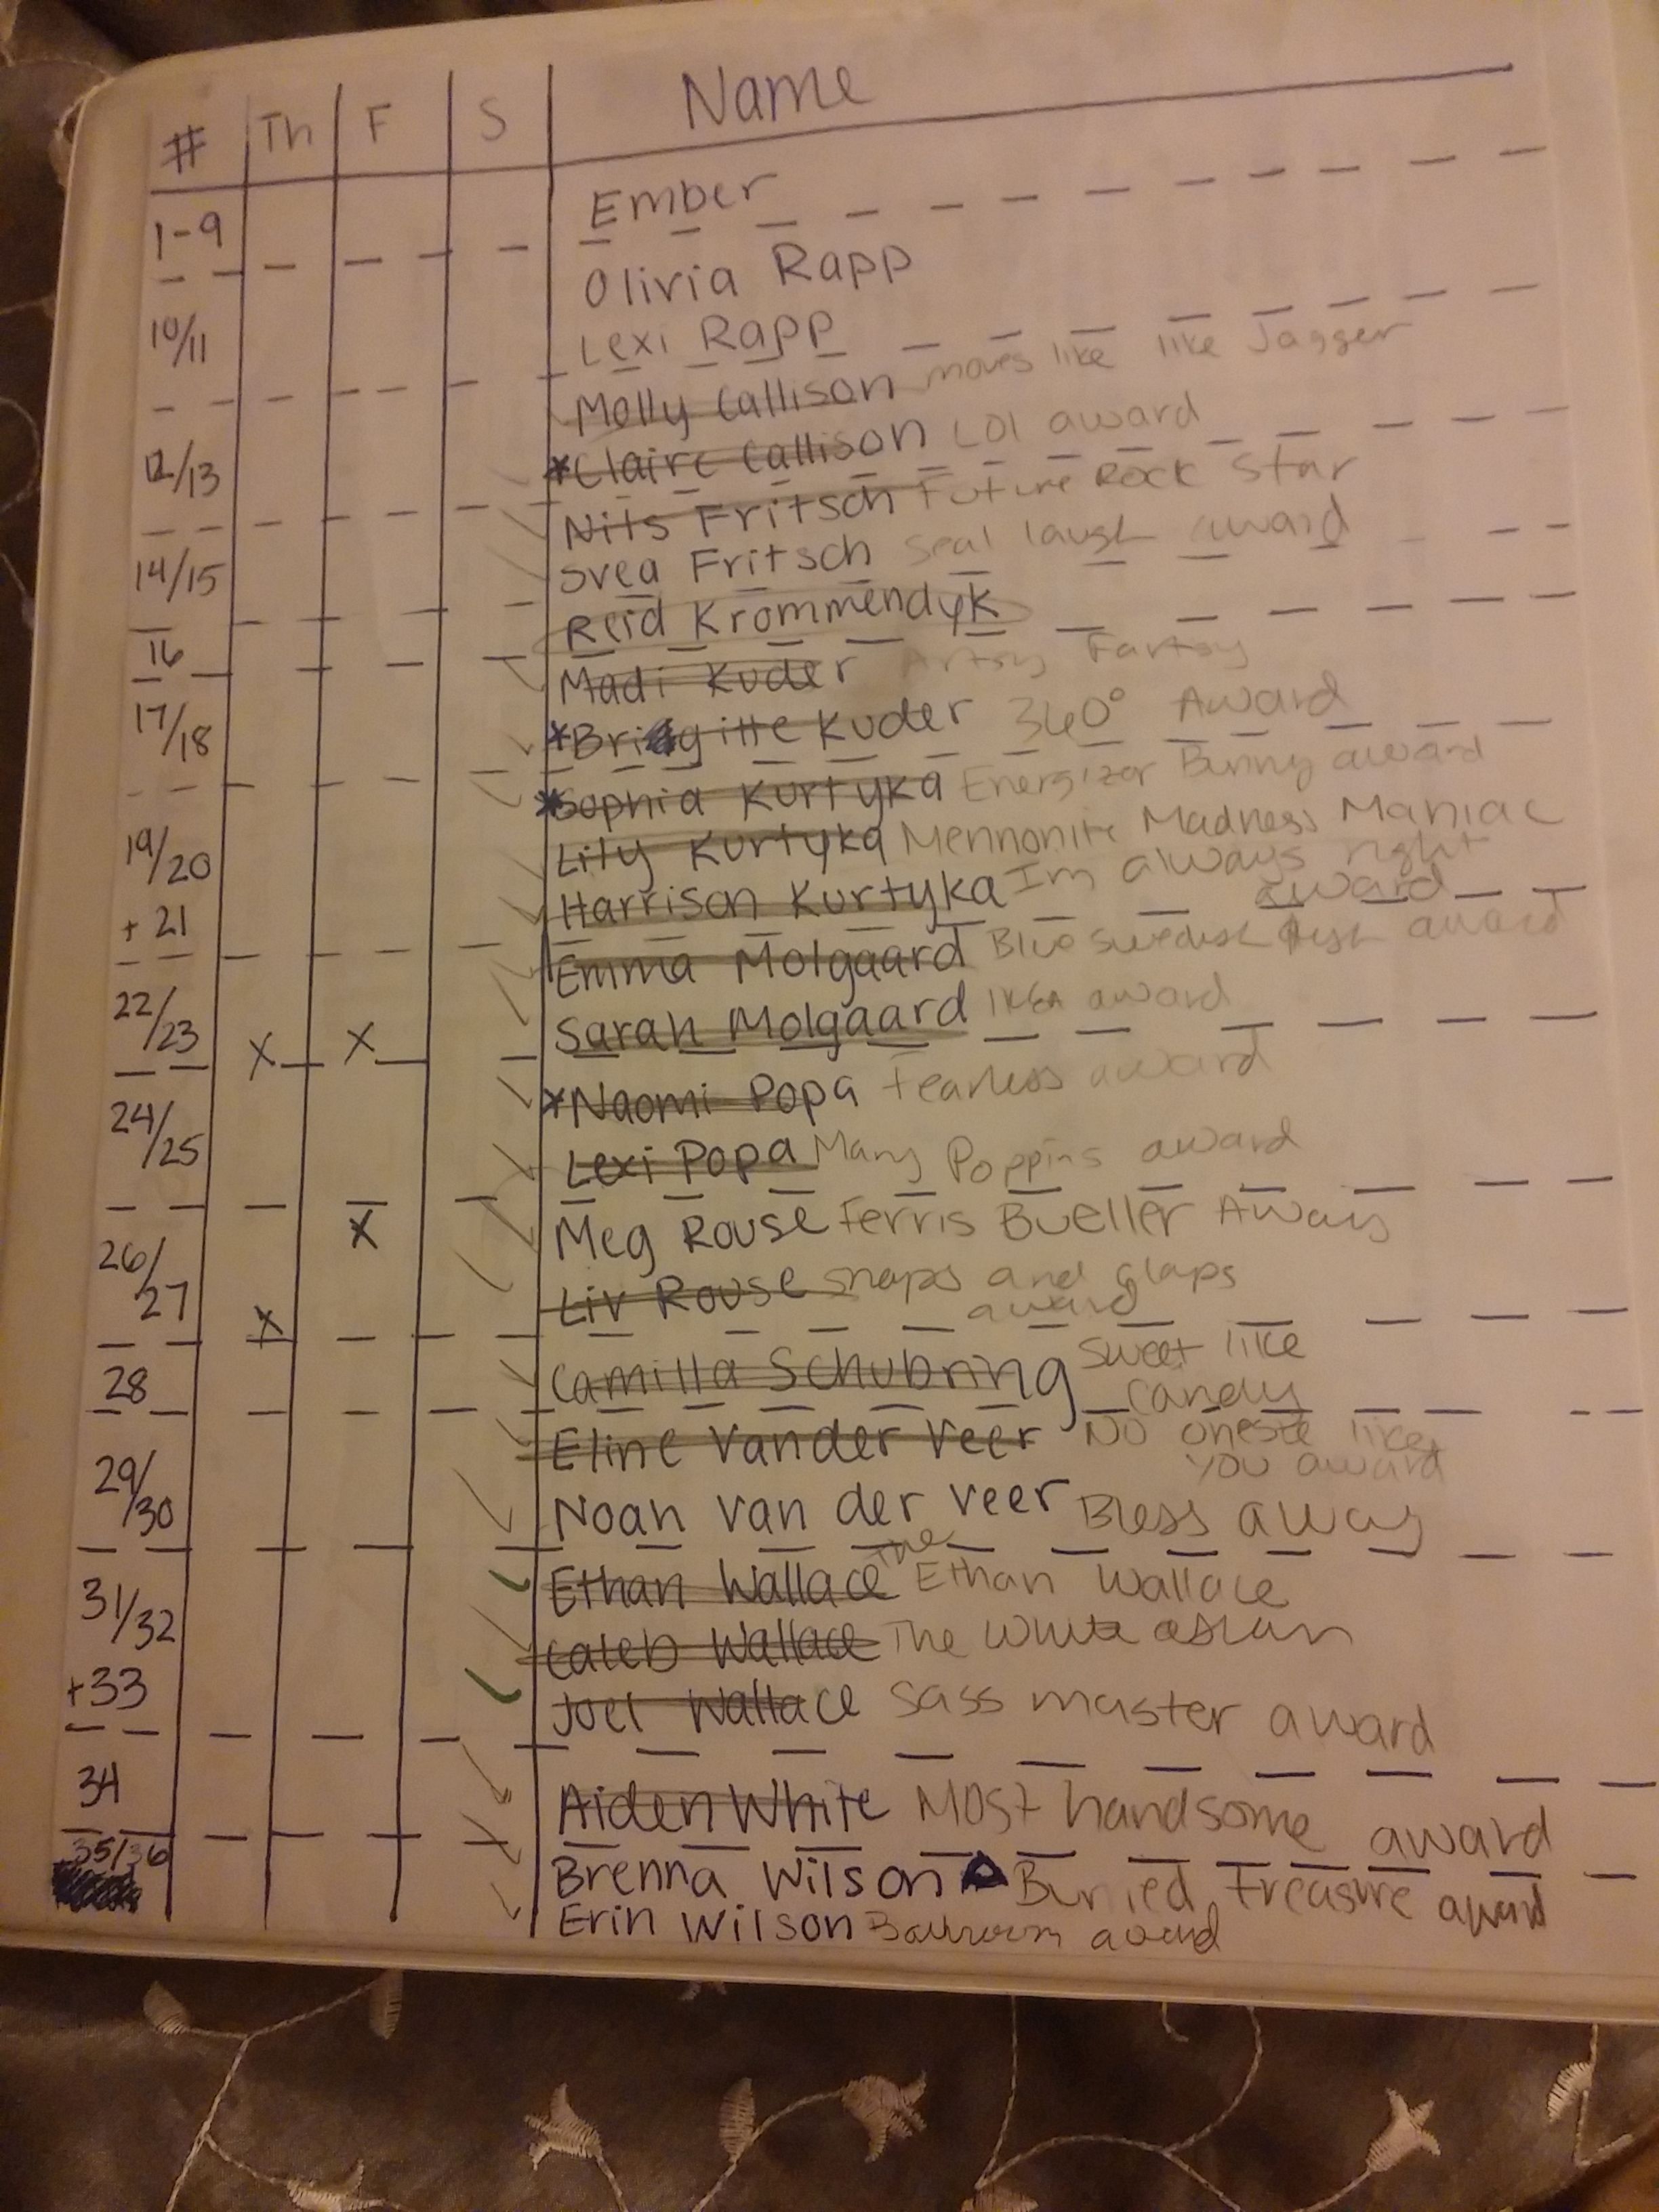 # Th F S Name
1-9 Ember
Olivia Rapp
10/11 Lexi Rapp
Molly Callison moves like like Jagger
12/13 *Claire Callison LOL award
Nils Fritsch Future Rock Star
14/15 Svea Fritsch Seal laugh award
16 Reid Krommendyk
Madi Kuder Artsy Fartsy
17/18 *Brigitte Kuder 360° Award
*Sophia Kurtyka Energizer Bunny award
19/20 Lily Kurtyka Mennonite Madness Maniac
+ 21 Harrison Kurtyka Im always right
award
Emma Molgaard Blue Swedish fish award
22/23 X X Sarah Molgaard IKEA award
*Naomi Popa Fearless award
24/25 Lexi Popa Mary Poppins award
X Meg Rouse Ferris Bueller Away
26/27 X Liv Rouse snaps and claps
award
28 Camilla Schubring Sweet like
candy
Eline Vander Veer No oneste like
you award
29/30 Noah van der veer Bless away
Ethan Wallace The Ethan Wallace
31/32 Caleb Wallace The White asian
+33 Joel Wallace Sass master award
34 Aiden White Most handsome award
35/36 Brenna Wilson Buried Treasure award
Erin Wilson Ballroom award